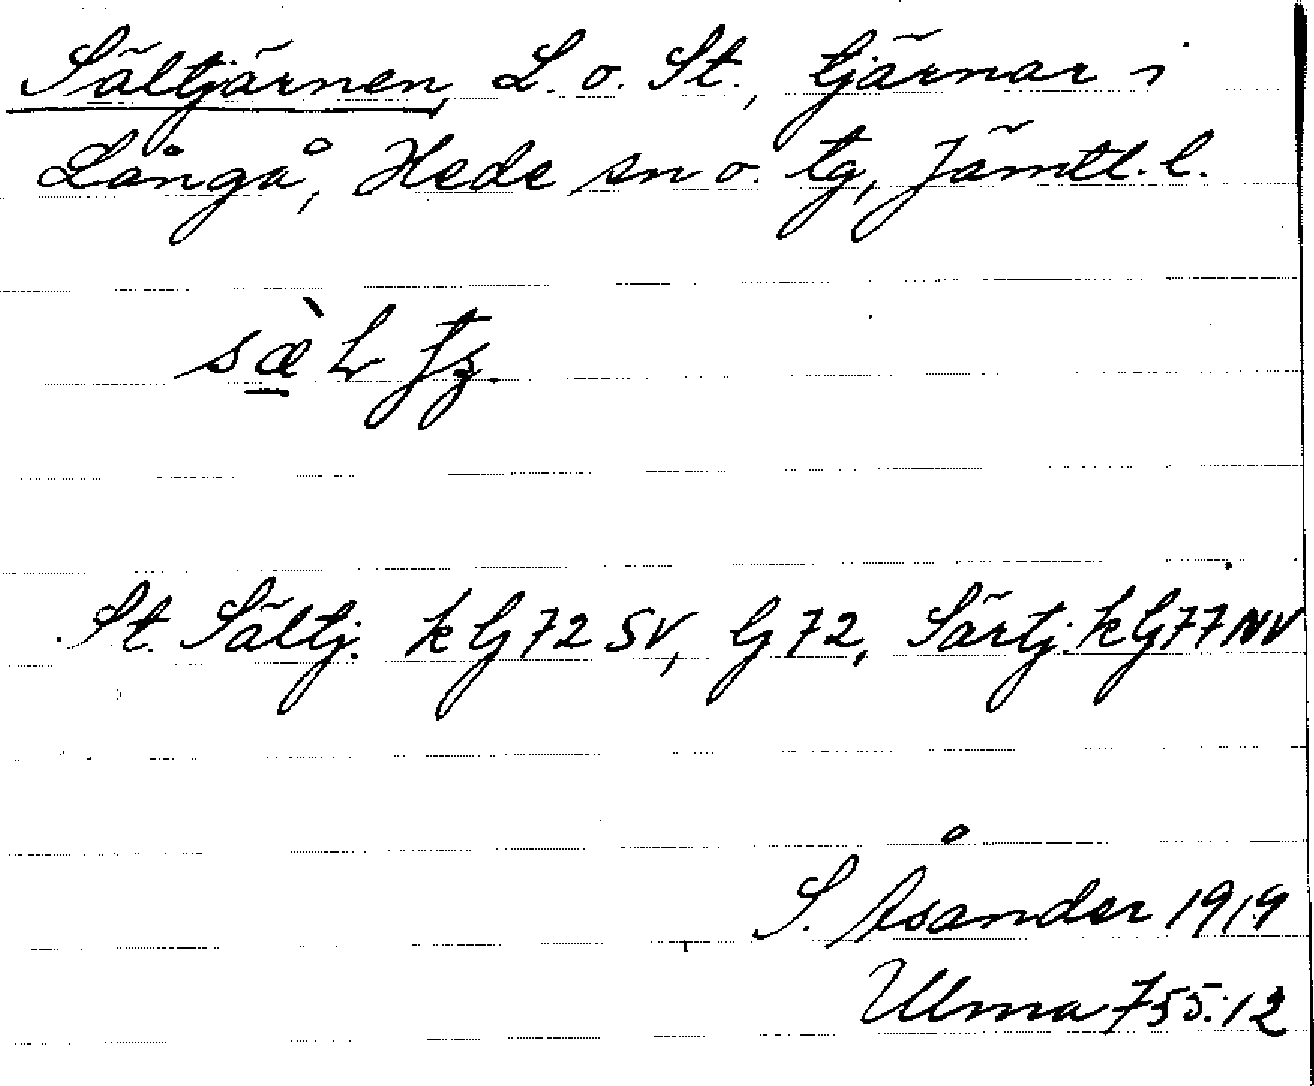 Sältjärnen, L. o. St., tjärnar i
Långå, Hede sn o. tg, Jämtl. l.
St. Sältj. k G 72 SV, G 72, Särtj. k G 77 NV
S. Åsander 1919
Ulma 755:12